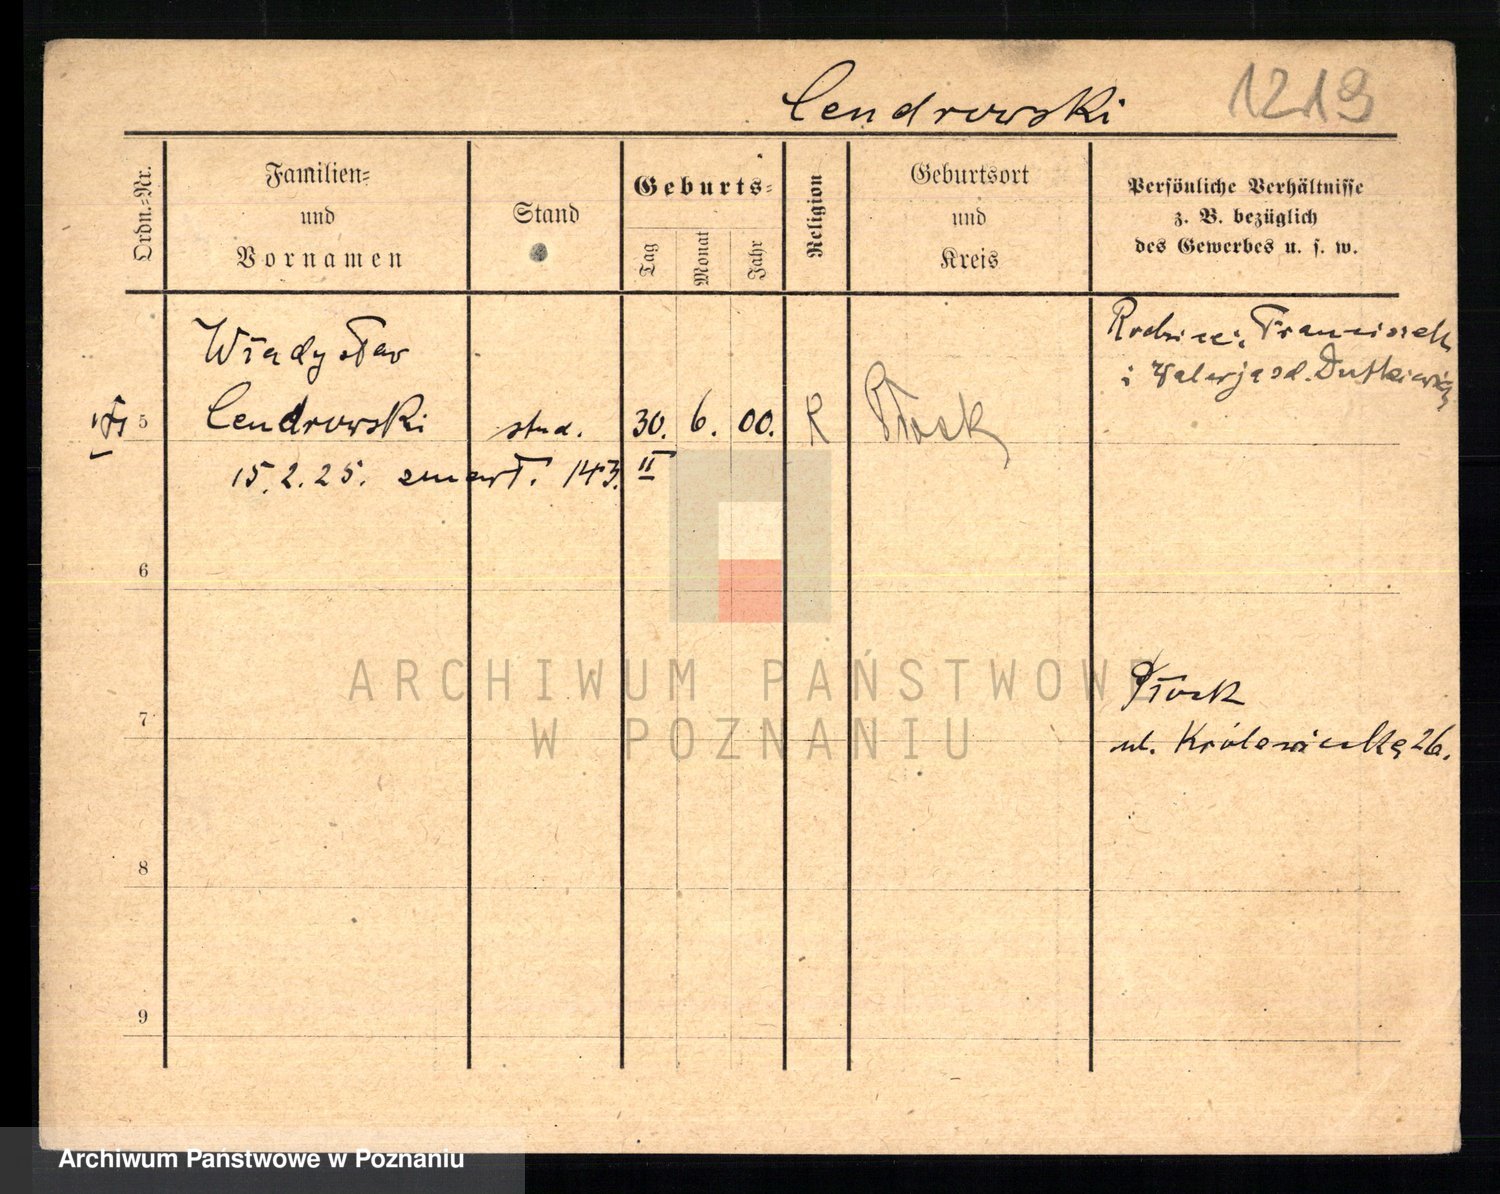 Cendrowski 1219
Ordn.-Nr.
Familien-
und
Vornamen
Stand
Geburts-
Tag
Monat
Jahr
Religion
Geburtsort
und
Kreis
Persönliche Verhältnisse
z. B. bezüglich
des Gewerbes u. s. w.
Władysław
5 Cendrowski stud. 30. 6. 00. R Płock
15.2.25. zmarł. 143. II
Rodzice: Franciszek
i Walerja zd. Dutkiewicz
6
7
8
9
Płock
ul. Królewiecka 26.
ARCHIWUM PAŃSTWOWE
W POZNANIU
Archiwum Państwowe w Poznaniu